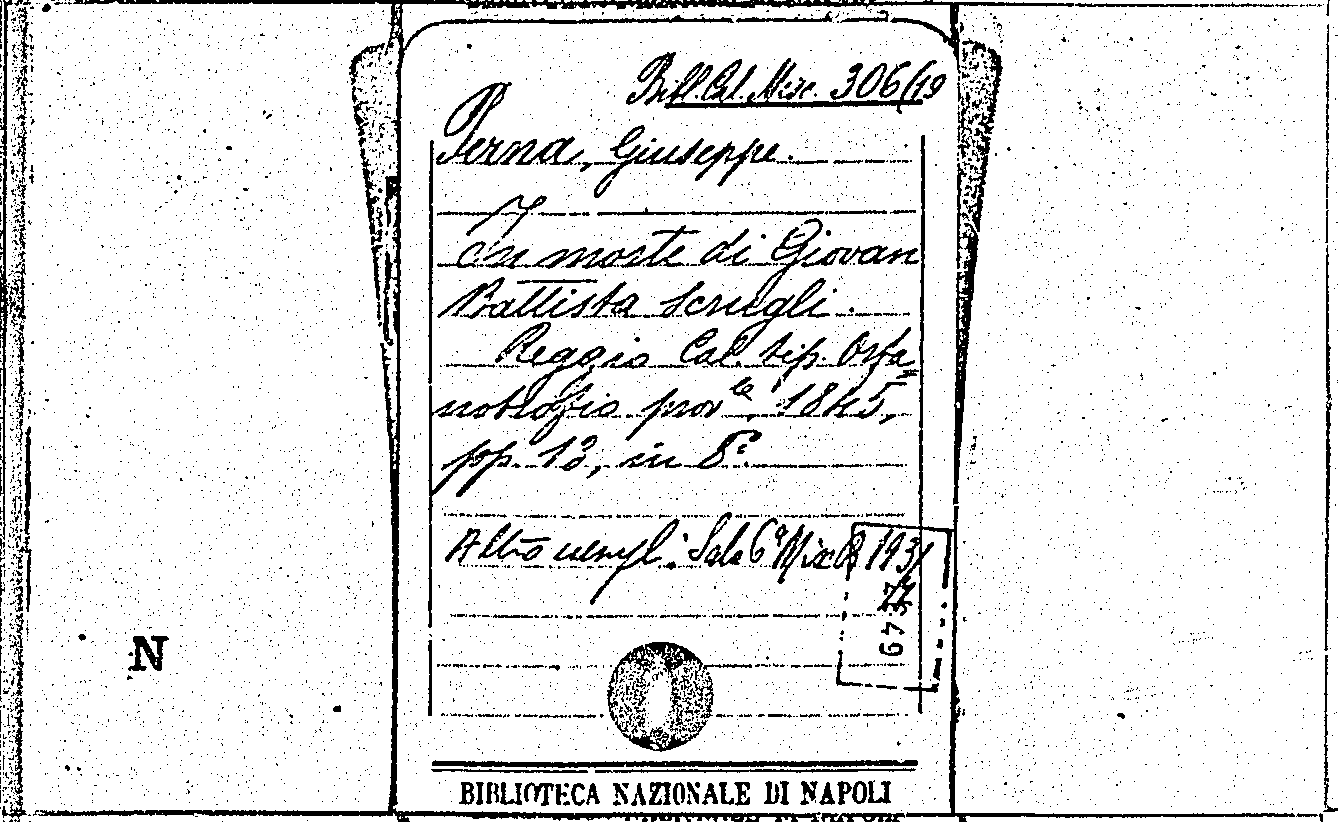 Bibl. Cal. Misc. 306(19
Perna, Giuseppe.
In morte di Giovan
Battista Scrugli.
Reggio Cal. tip. Orfa=
notrofio prov.le, 1845,
pp. 13, in 8°.
Altro esempl. Sala 6ª Misc. 193/
77
6749
N
BIBLIOTECA NAZIONALE DI NAPOLI